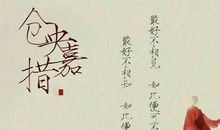 仓央嘉措
最好不相见
如此便可不
最好不相知
如此便